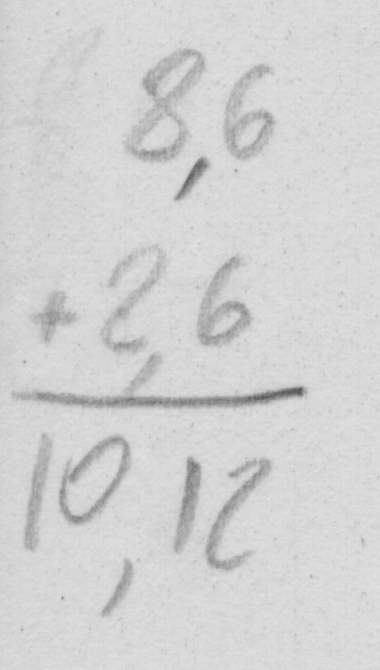 8,6
+ 2,6
10,12